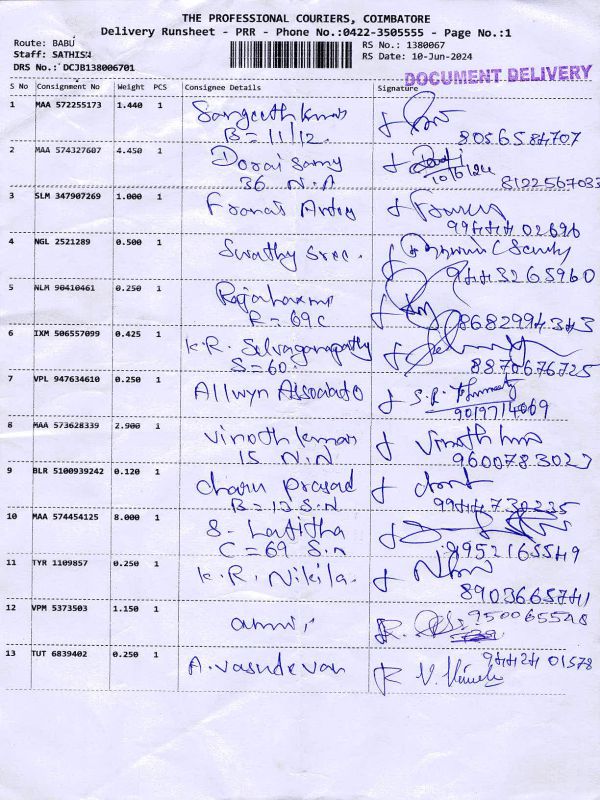 THE PROFESSIONAL COURIERS, COIMBATORE
Delivery Runsheet - PRR - Phone No.:0422-3505555 - Page No.:1
Route: BABU
RS No.: 1380067
Staff: SATHISH
RS Date: 10-Jun-2024
DRS No.: DCJB138006701
DOCUMENT DELIVERY
S No Consignment No Weight PCS Consignee Details Signature
1 MAA 572255173 1.440 1 Sangeeth kumar
B = 11/12. 8056584707
2 MAA 574327607 4.450 1 Dorai Samy
10/6/24
36 N.A 8122567033
3 SLM 347907269 1.000 1 Francis
99444 02696
4 NGL 2521289 0.500 1 Swathy Sree.
9443265960
5 NLM 90410461 0.250 1 Rajalaxmi
R = 69C 8682994343
6 IXM 506557099 0.425 1 K.R. Selvaganapathy
S = 60. 8870676725
7 VPL 947634610 0.250 1 Allwyn Associate S.R.
9019714069
8 MAA 573628339 2.900 1 Vinoth kumar Vinoth
15 N.N 9600783023
9 BLR 5100939242 0.120 1 Charu Prasad
B = 12 S.N 99444730235
10 MAA 574454125 8.000 1 S. Lalitha
C = 69 S.N 8952165549
11 TYR 1109857 0.250 1 K.R. Nikila.
8903665741
12 VPM 5373503 1.150 1 R. 950065548
13 TUT 6839402 0.250 1 A. Vasudevan 944424 01578